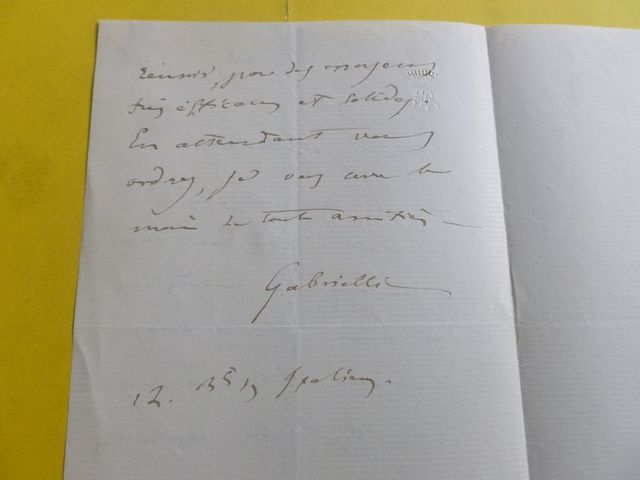 réussir, par des moyens
très efficaces et solides
En attendant vos
ordres, je vous serre la
main de toute amitié
Gabrielli
12. Bd des Italiens.